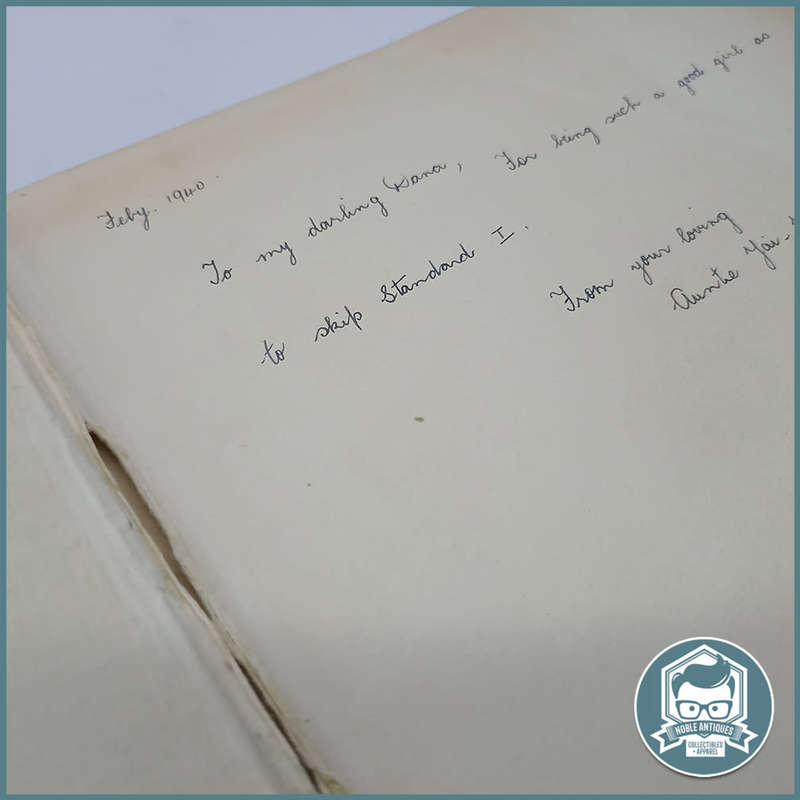 Feby. 1940.
To my darling Dana, For being such a good girl as
to skip Standard I.
From your loving
Auntie
NOBLE ANTIQUES
COLLECTIBLES
+ APPAREL